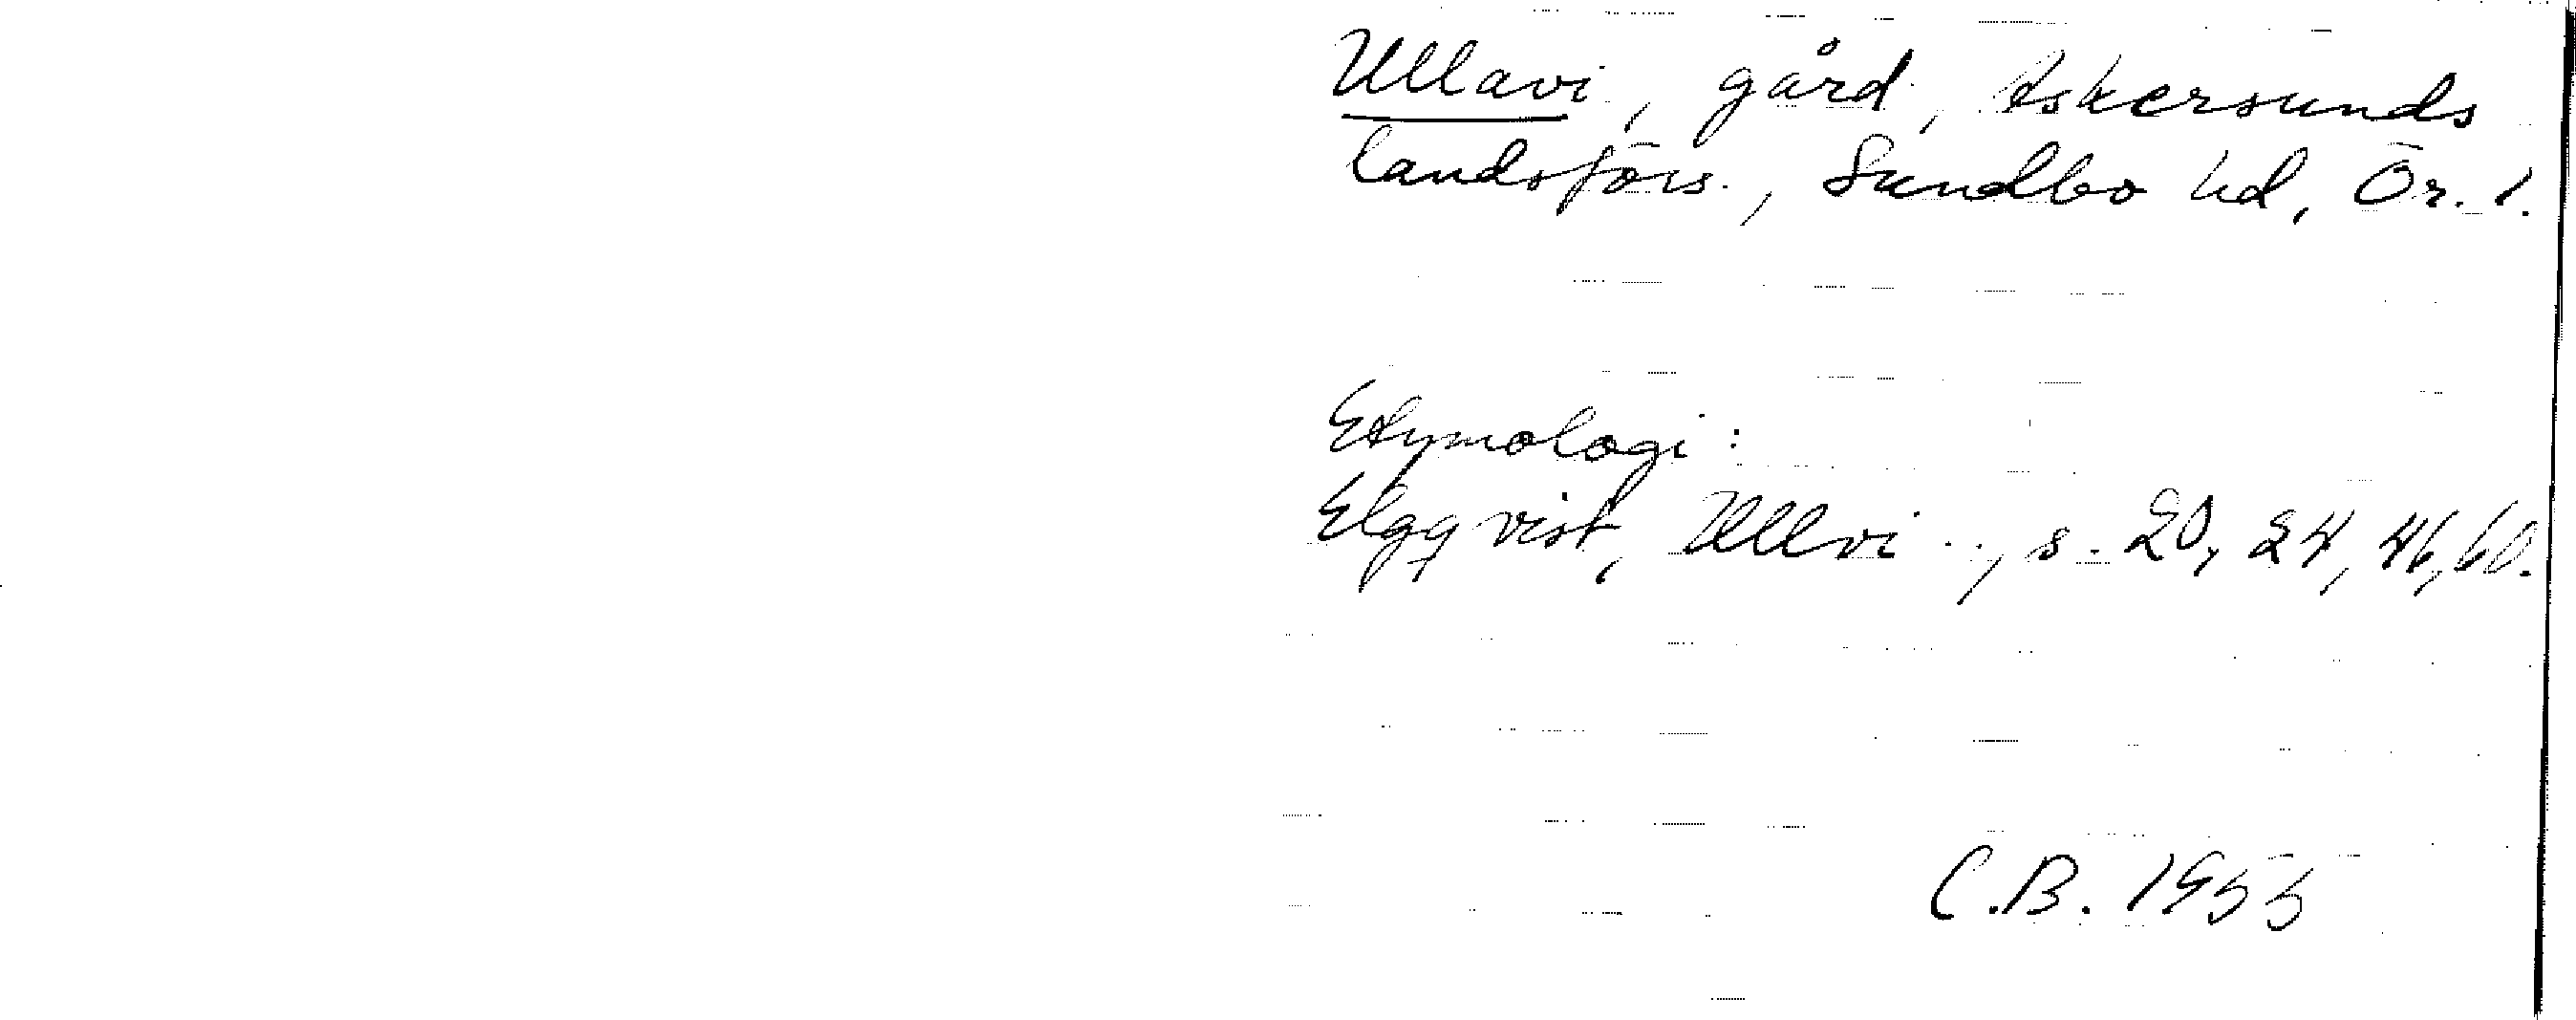 Ullavi, gård, Askersunds
landsförs., Sundbo hd, Ör. l.
Etymologi:
Elgqvist, Ullvi.., s. 20, 24, 46, 60.
C.B. 1955